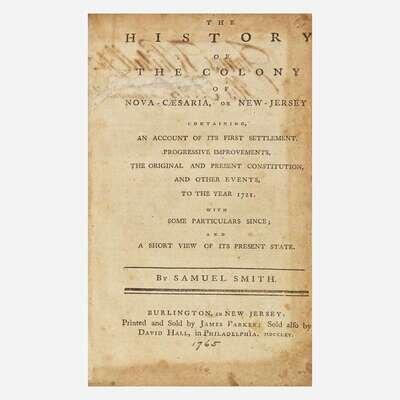 THE
HISTORY
OF
THE COLONY
OF
NOVA-CÆSARIA, OR NEW-JERSEY
CONTAINING,
AN ACCOUNT OF ITS FIRST SETTLEMENT,
PROGRESSIVE IMPROVEMENTS,
THE ORIGINAL AND PRESENT CONSTITUTION,
AND OTHER EVENTS,
TO THE YEAR 1721.
WITH
SOME PARTICULARS SINCE;
AND
A SHORT VIEW OF ITS PRESENT STATE.
BY SAMUEL SMITH.
BURLINGTON, IN NEW JERSEY:
Printed and Sold by JAMES PARKER: Sold also by
DAVID HALL, in PHILADELPHIA. MDCCLXV.
1765